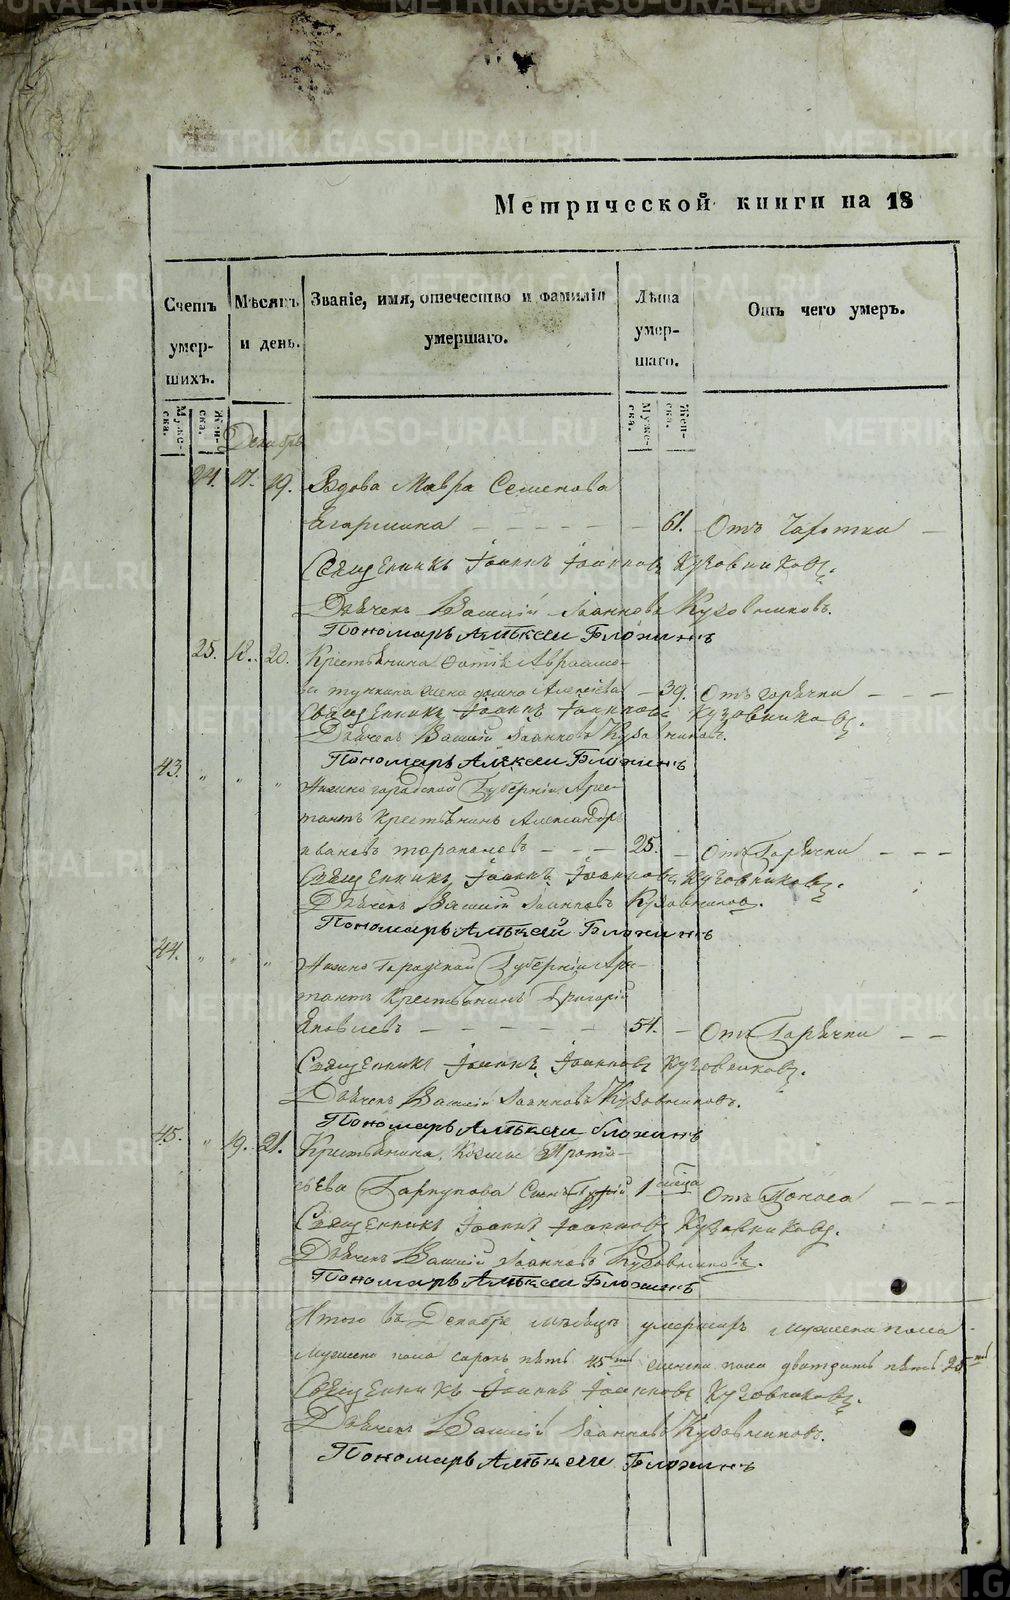 Метрической книги на 18
Счетъ умер-шихъ.
Мѣсяцъ и день.
Званіе, имя, отечество и фамилія умершаго.
Лѣта умер-шаго.
Отъ чего умеръ.
Муже-ска.
Жен-ска.
Муже-ска.
Жен-ска.
Декабрь
24. 17. 19. Вдова Мавра Семенова
61. Отъ Чахотки
Священникъ Іоаннъ Іоанновъ Кузовниковъ.
Дьячекъ Василій Іоанновъ Кузовниковъ.
Пономарь Алѣксѣй Бложинъ
25. 18. 20. Крестьянина Фотія Авраамо-
жена Алексѣева 39. Отъ горячки
Священникъ Іоаннъ Іоанновъ Кузовниковъ.
Дьячекъ Василій Іоанновъ Кузовниковъ.
Пономарь Алѣксѣй Бложинъ
43. " " " Нижегородской Губерніи Аре-
стантъ Крестьянинъ Александръ
Ивановъ 25. Отъ Горячки
Священникъ Іоаннъ Іоанновъ Кузовниковъ.
Дьячекъ Василій Іоанновъ Кузовниковъ.
Пономарь Алѣксѣй Бложинъ
44. " " " Губерніи Аре-
стантъ Крестьянинъ Григорій
Яковлевъ 54. Отъ Горячки
Священникъ Іоаннъ Іоанновъ Кузовниковъ.
Дьячекъ Василій Іоанновъ Кузовниковъ.
Пономарь Алѣксѣй Бложинъ
45. " 19. 21. Крестьянина Козмы
сынъ 1 Отъ Поноса
Священникъ Іоаннъ Іоанновъ Кузовниковъ.
Дьячекъ Василій Іоанновъ Кузовниковъ.
Пономарь Алѣксѣй Бложинъ
Итого въ Декабрѣ мѣсяцѣ умершихъ мужеска пола
мужеска пола сорокъ пять 45 женска пола двадцать пять 25
Священникъ Іоаннъ Іоанновъ Кузовниковъ.
Дьячекъ Василій Іоанновъ Кузовниковъ.
Пономарь Алѣксѣй Бложинъ
METRIKI.GASO-URAL.RU